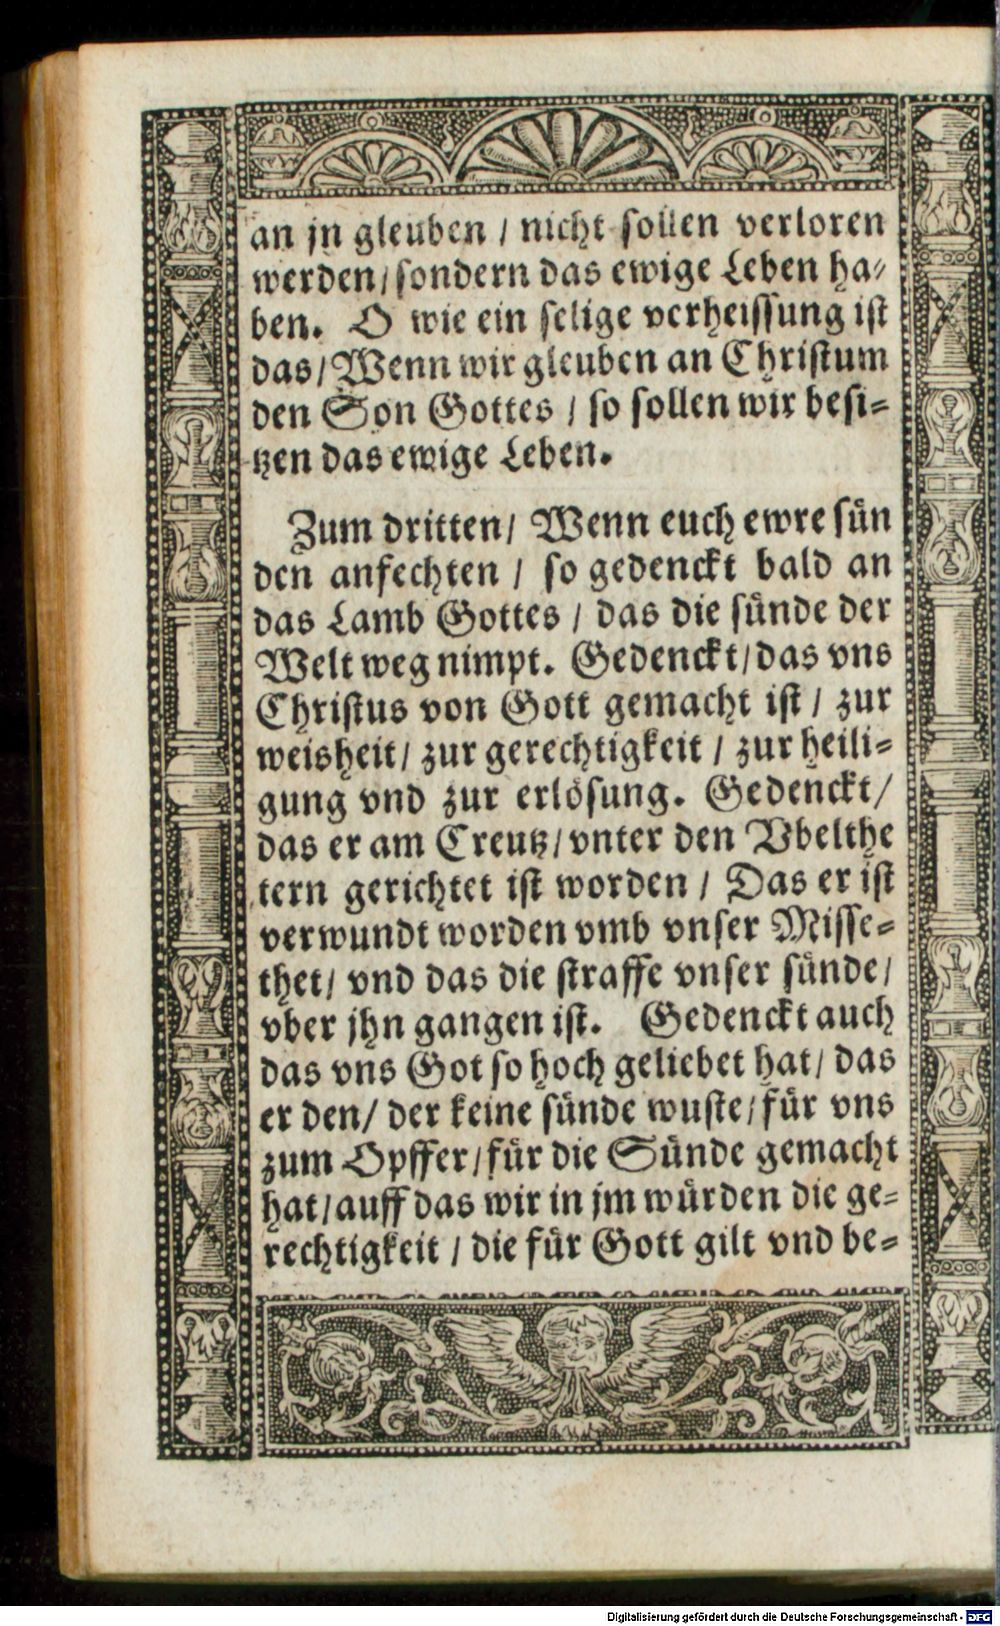 an jn gleuben / nicht sollen verloren
werden / sondern das ewige Leben ha-
ben. O wie ein selige verheissung ist
das / Wenn wir gleuben an Christum
den Son Gottes / so sollen wir besi-
tzen das ewige Leben.
Zum dritten / Wenn euch ewre sün
den anfechten / so gedenckt bald an
das Lamb Gottes / das die sünde der
Welt weg nimpt. Gedenckt / das vns
Christus von Gott gemacht ist / zur
weisheit / zur gerechtigkeit / zur heili-
gung vnd zur erlösung. Gedenckt /
das er am Creutz / vnter den Vbelthe
tern gerichtet ist worden / Das er ist
verwundt worden vmb vnser Misse-
thet / vnd das die straffe vnser sünde /
vber jhn gangen ist. Gedenckt auch
das vns Got so hoch geliebet hat / das
er den / der keine sünde wuste / für vns
zum Opffer / für die Sünde gemacht
hat / auff das wir in jm würden die ge-
rechtigkeit / die für Gott gilt vnd be-
Digitalisierung gefördert durch die Deutsche Forschungsgemeinschaft - DFG